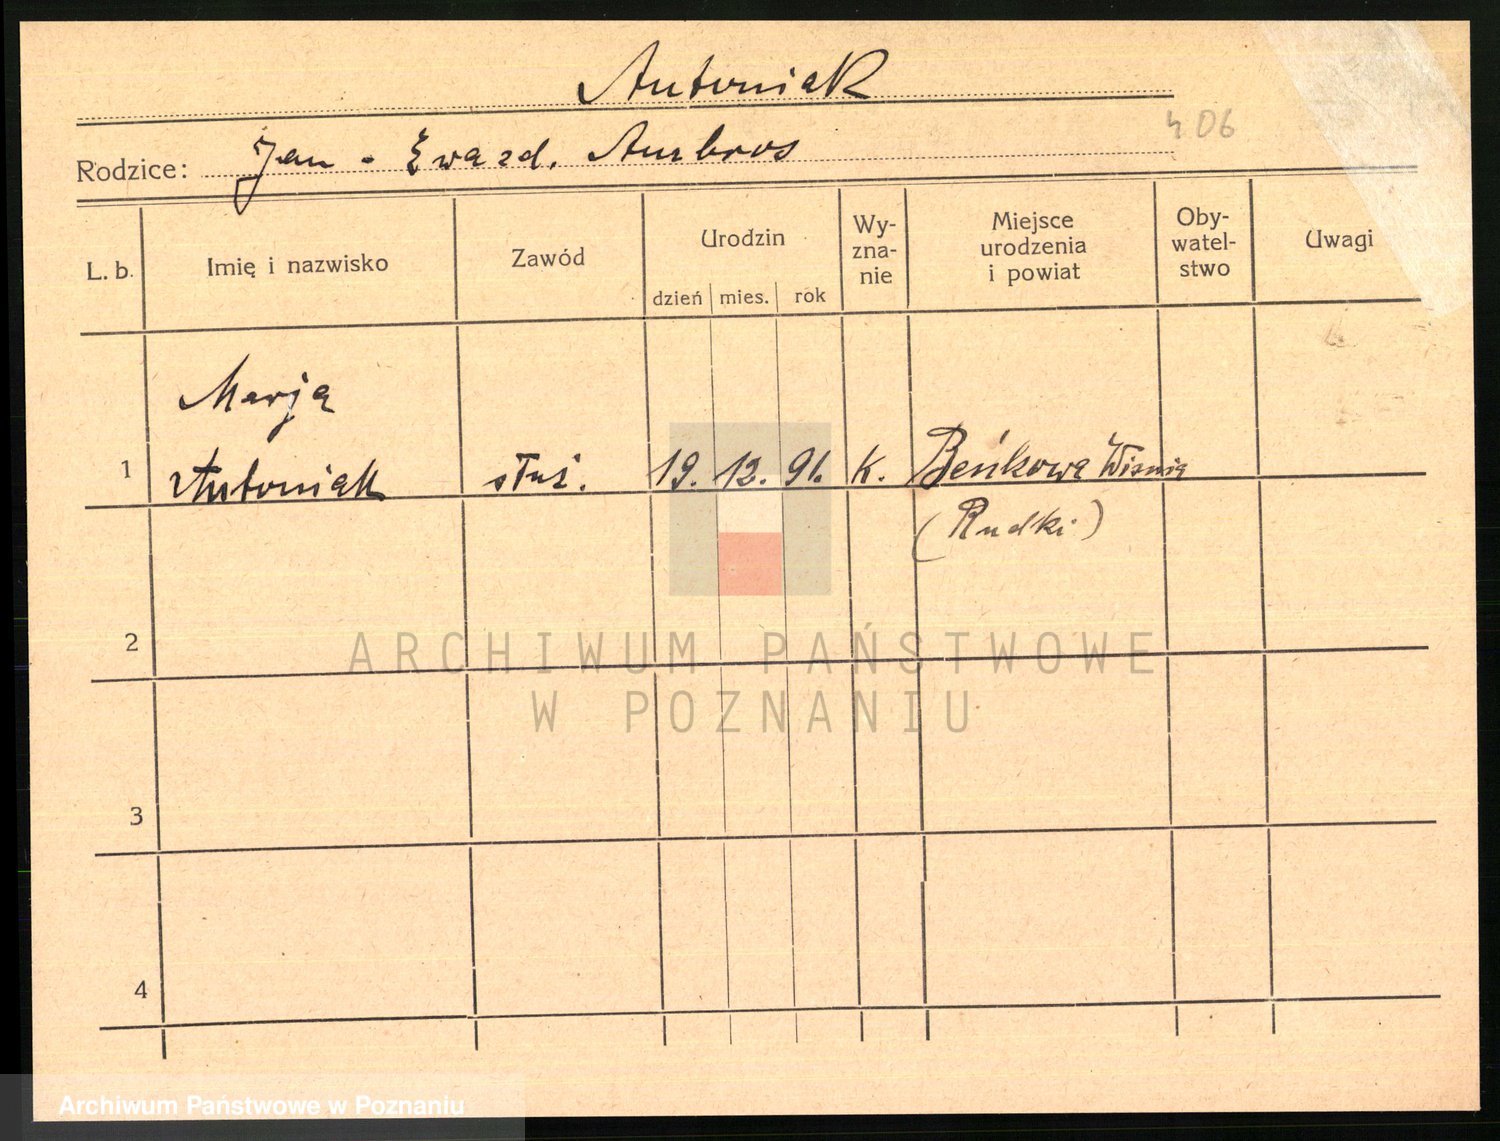 Antoniak
406
Rodzice: Jan - Ewa zd. Ambros
L. b. Imię i nazwisko Zawód Urodzin dzień mies. rok Wy-zna-nie Miejsce urodzenia i powiat Oby-watel-stwo Uwagi
Marja
1 Antoniak służ. 19. 12. 91. K. Beńkowa Wisznia
(Rudki)
2
ARCHIWUM PAŃSTWOWE
W POZNANIU
3
4
Archiwum Państwowe w Poznaniu